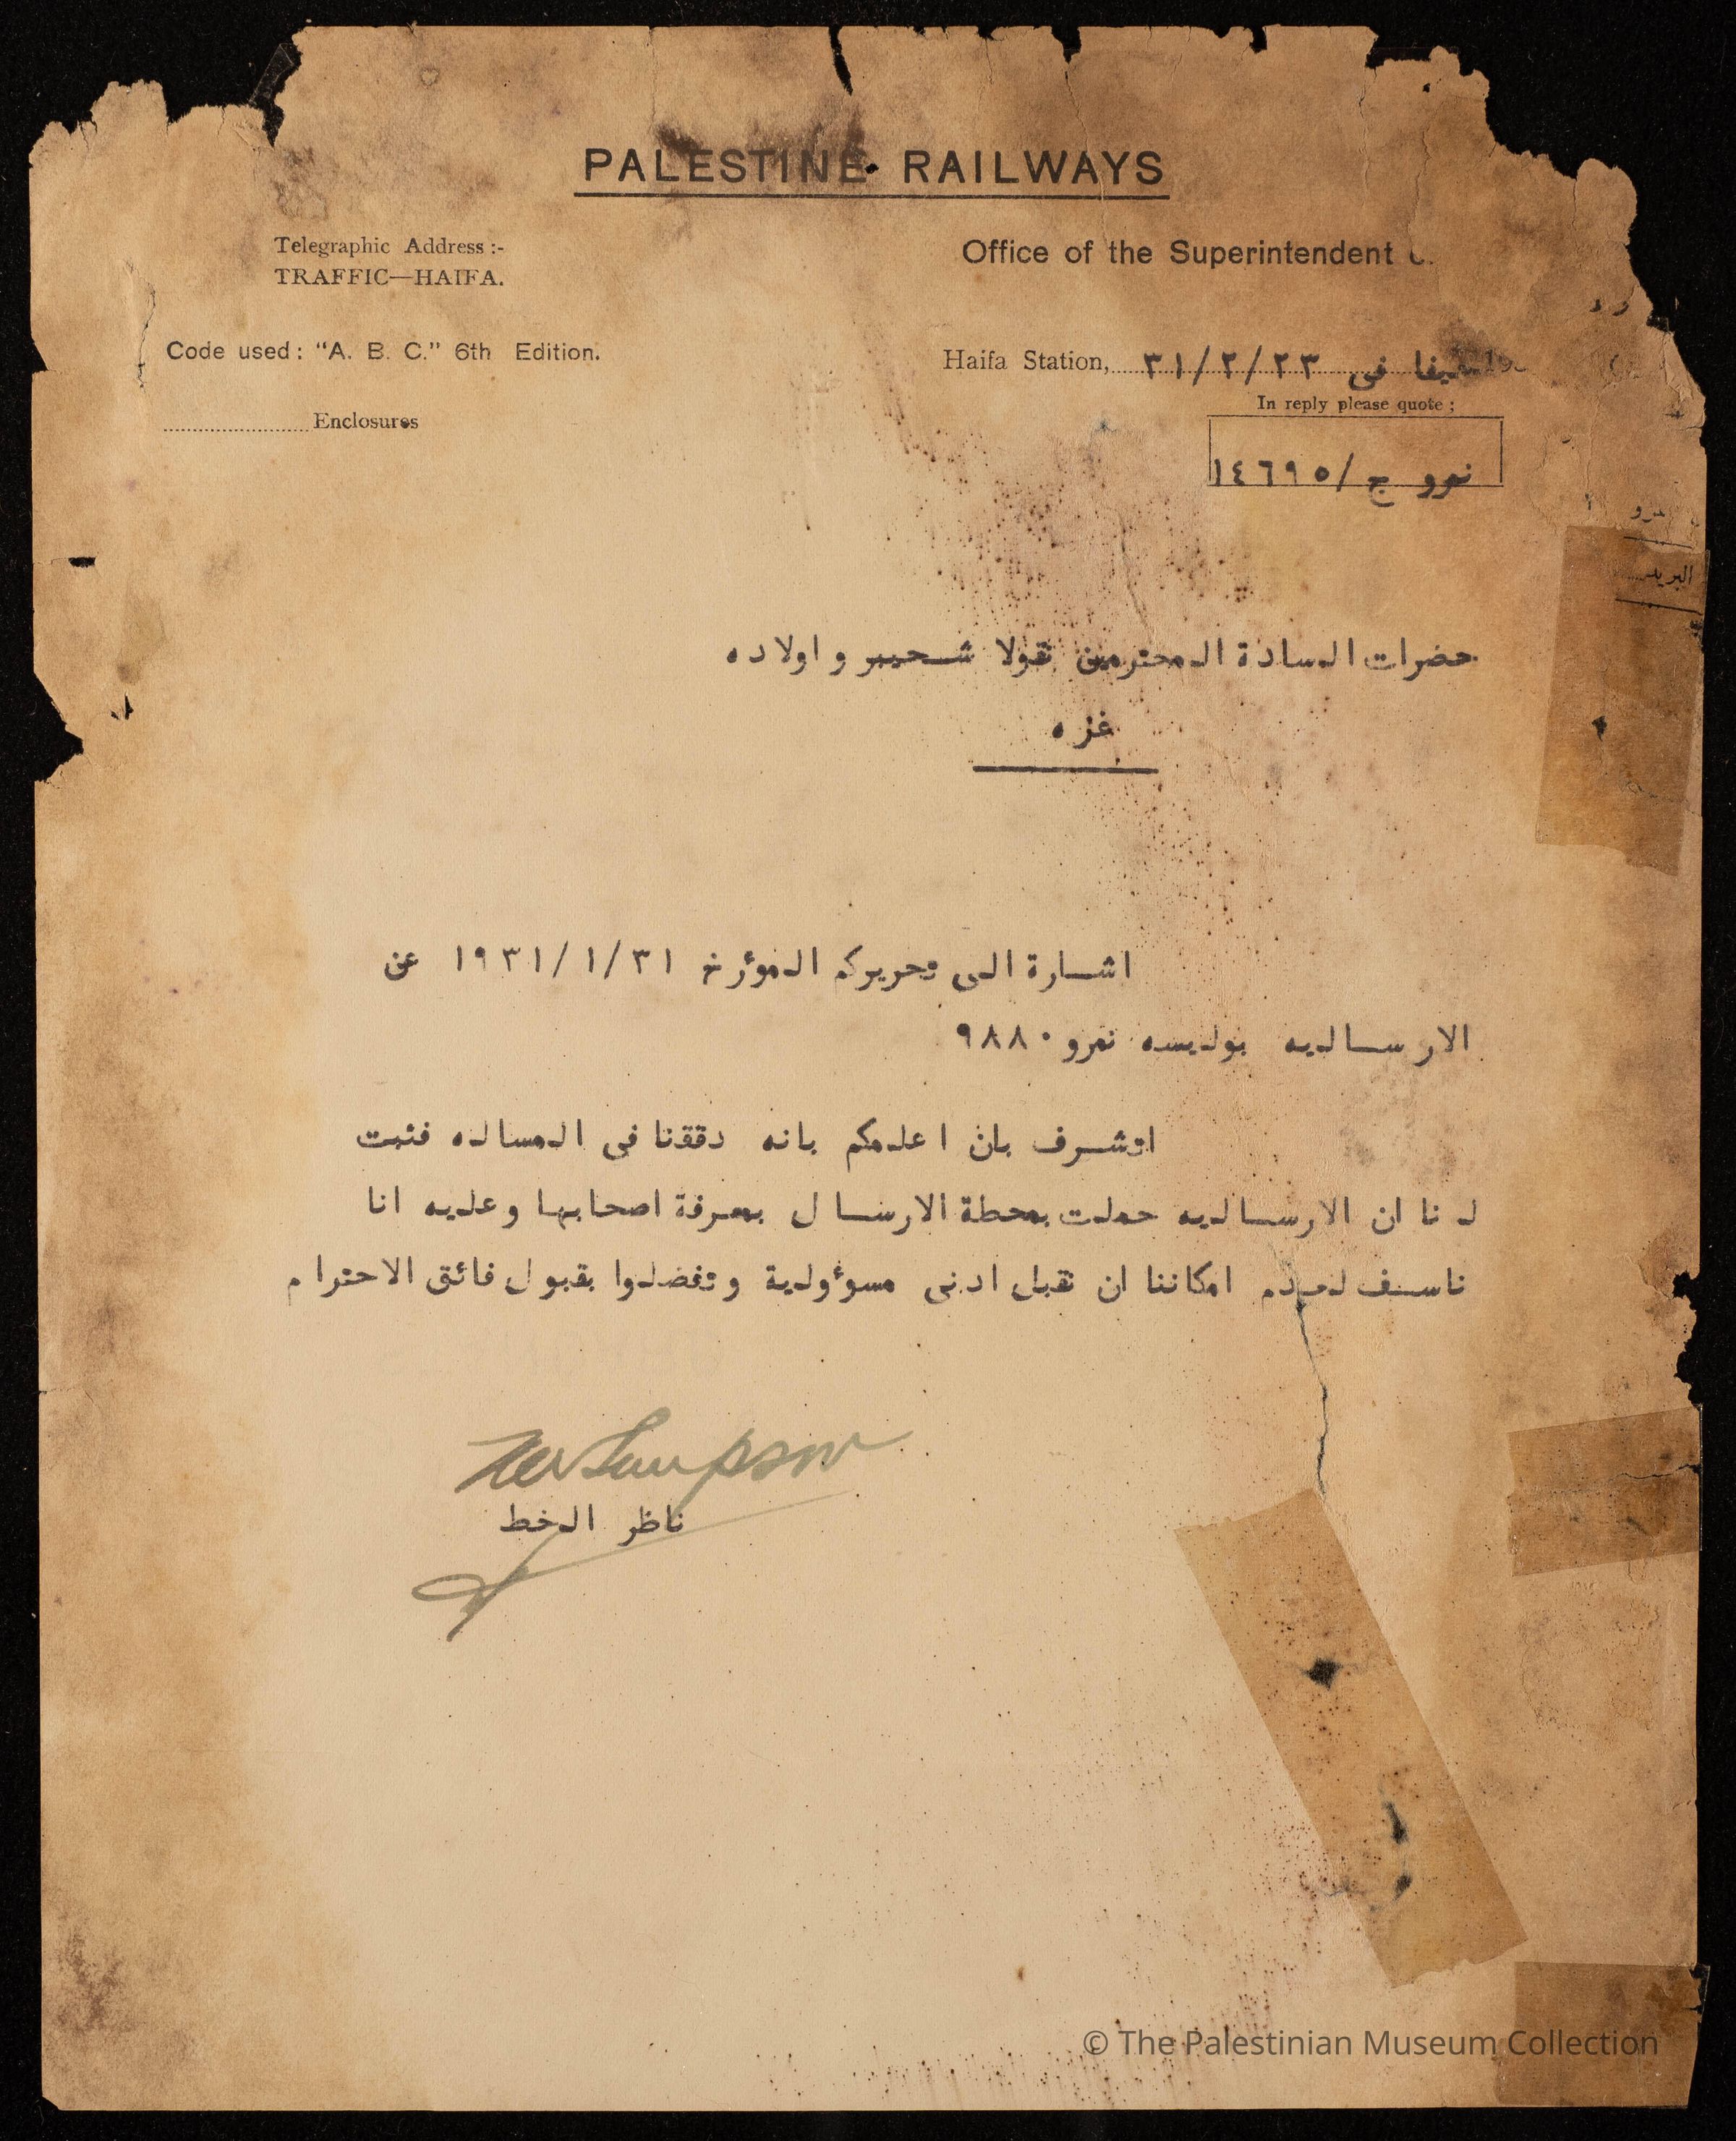 PALESTINE RAILWAYS
Telegraphic Address :-
TRAFFIC—HAIFA.
Office of the Superintendent
Code used: "A. B. C." 6th Edition.
Haifa Station, حيفا فى ٣١/٢/٢٣
In reply please quote :
Enclosures
نمرو ج/١٤٦٩٥
البريد
حضرات السادة المحترمين نقولا شحيبر و اولاده
غزه
اشارة الى تحريركم المؤرخ ١٩٣١/١/٣١ عن
الارساليه بوليسه نمرو ٩٨٨٠
اتشرف بان اعلمكم بانه دققنا فى المساله فثبت
لنا ان الارساليه حملت بمحطة الارسال بمعرفة اصحابها وعليه انا
ناسف لعدم امكاننا ان نقبل ادنى مسوؤولية وتفضلوا بقبول فائق الاحترام
ناظر الخط
© The Palestinian Museum Collection